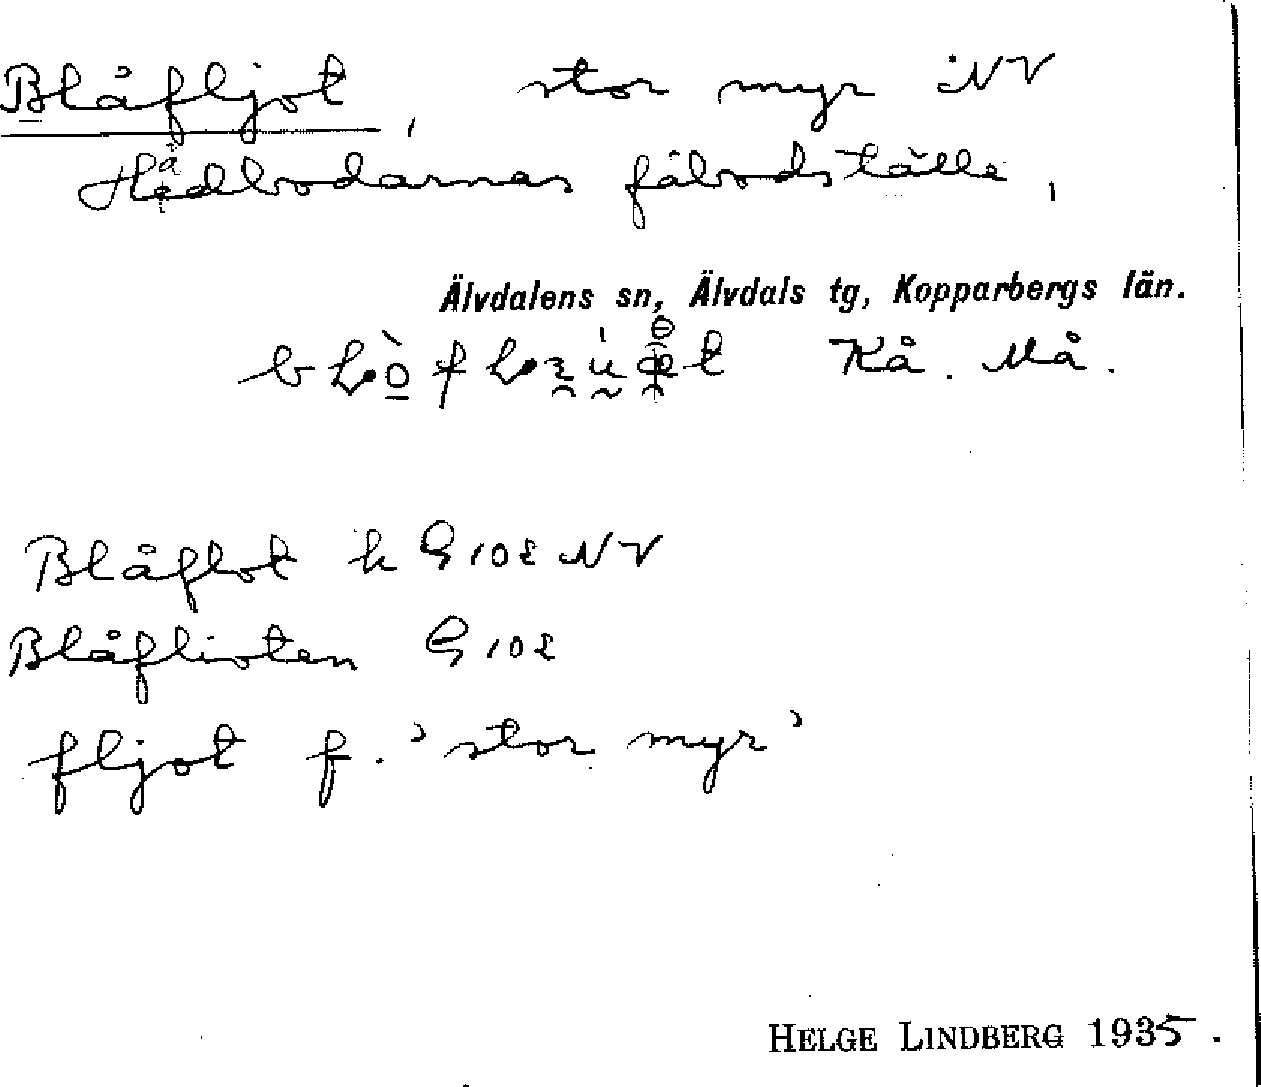 Blåfljot, stor myr NV
Hådbodarnas fäbodställe,
Älvdalens sn, Älvdals tg, Kopparbergs län.
Kå. Må.
Blåflot k G 102 NV
Blåflioten G 102
fljot f. 'stor myr'
HELGE LINDBERG 1935.